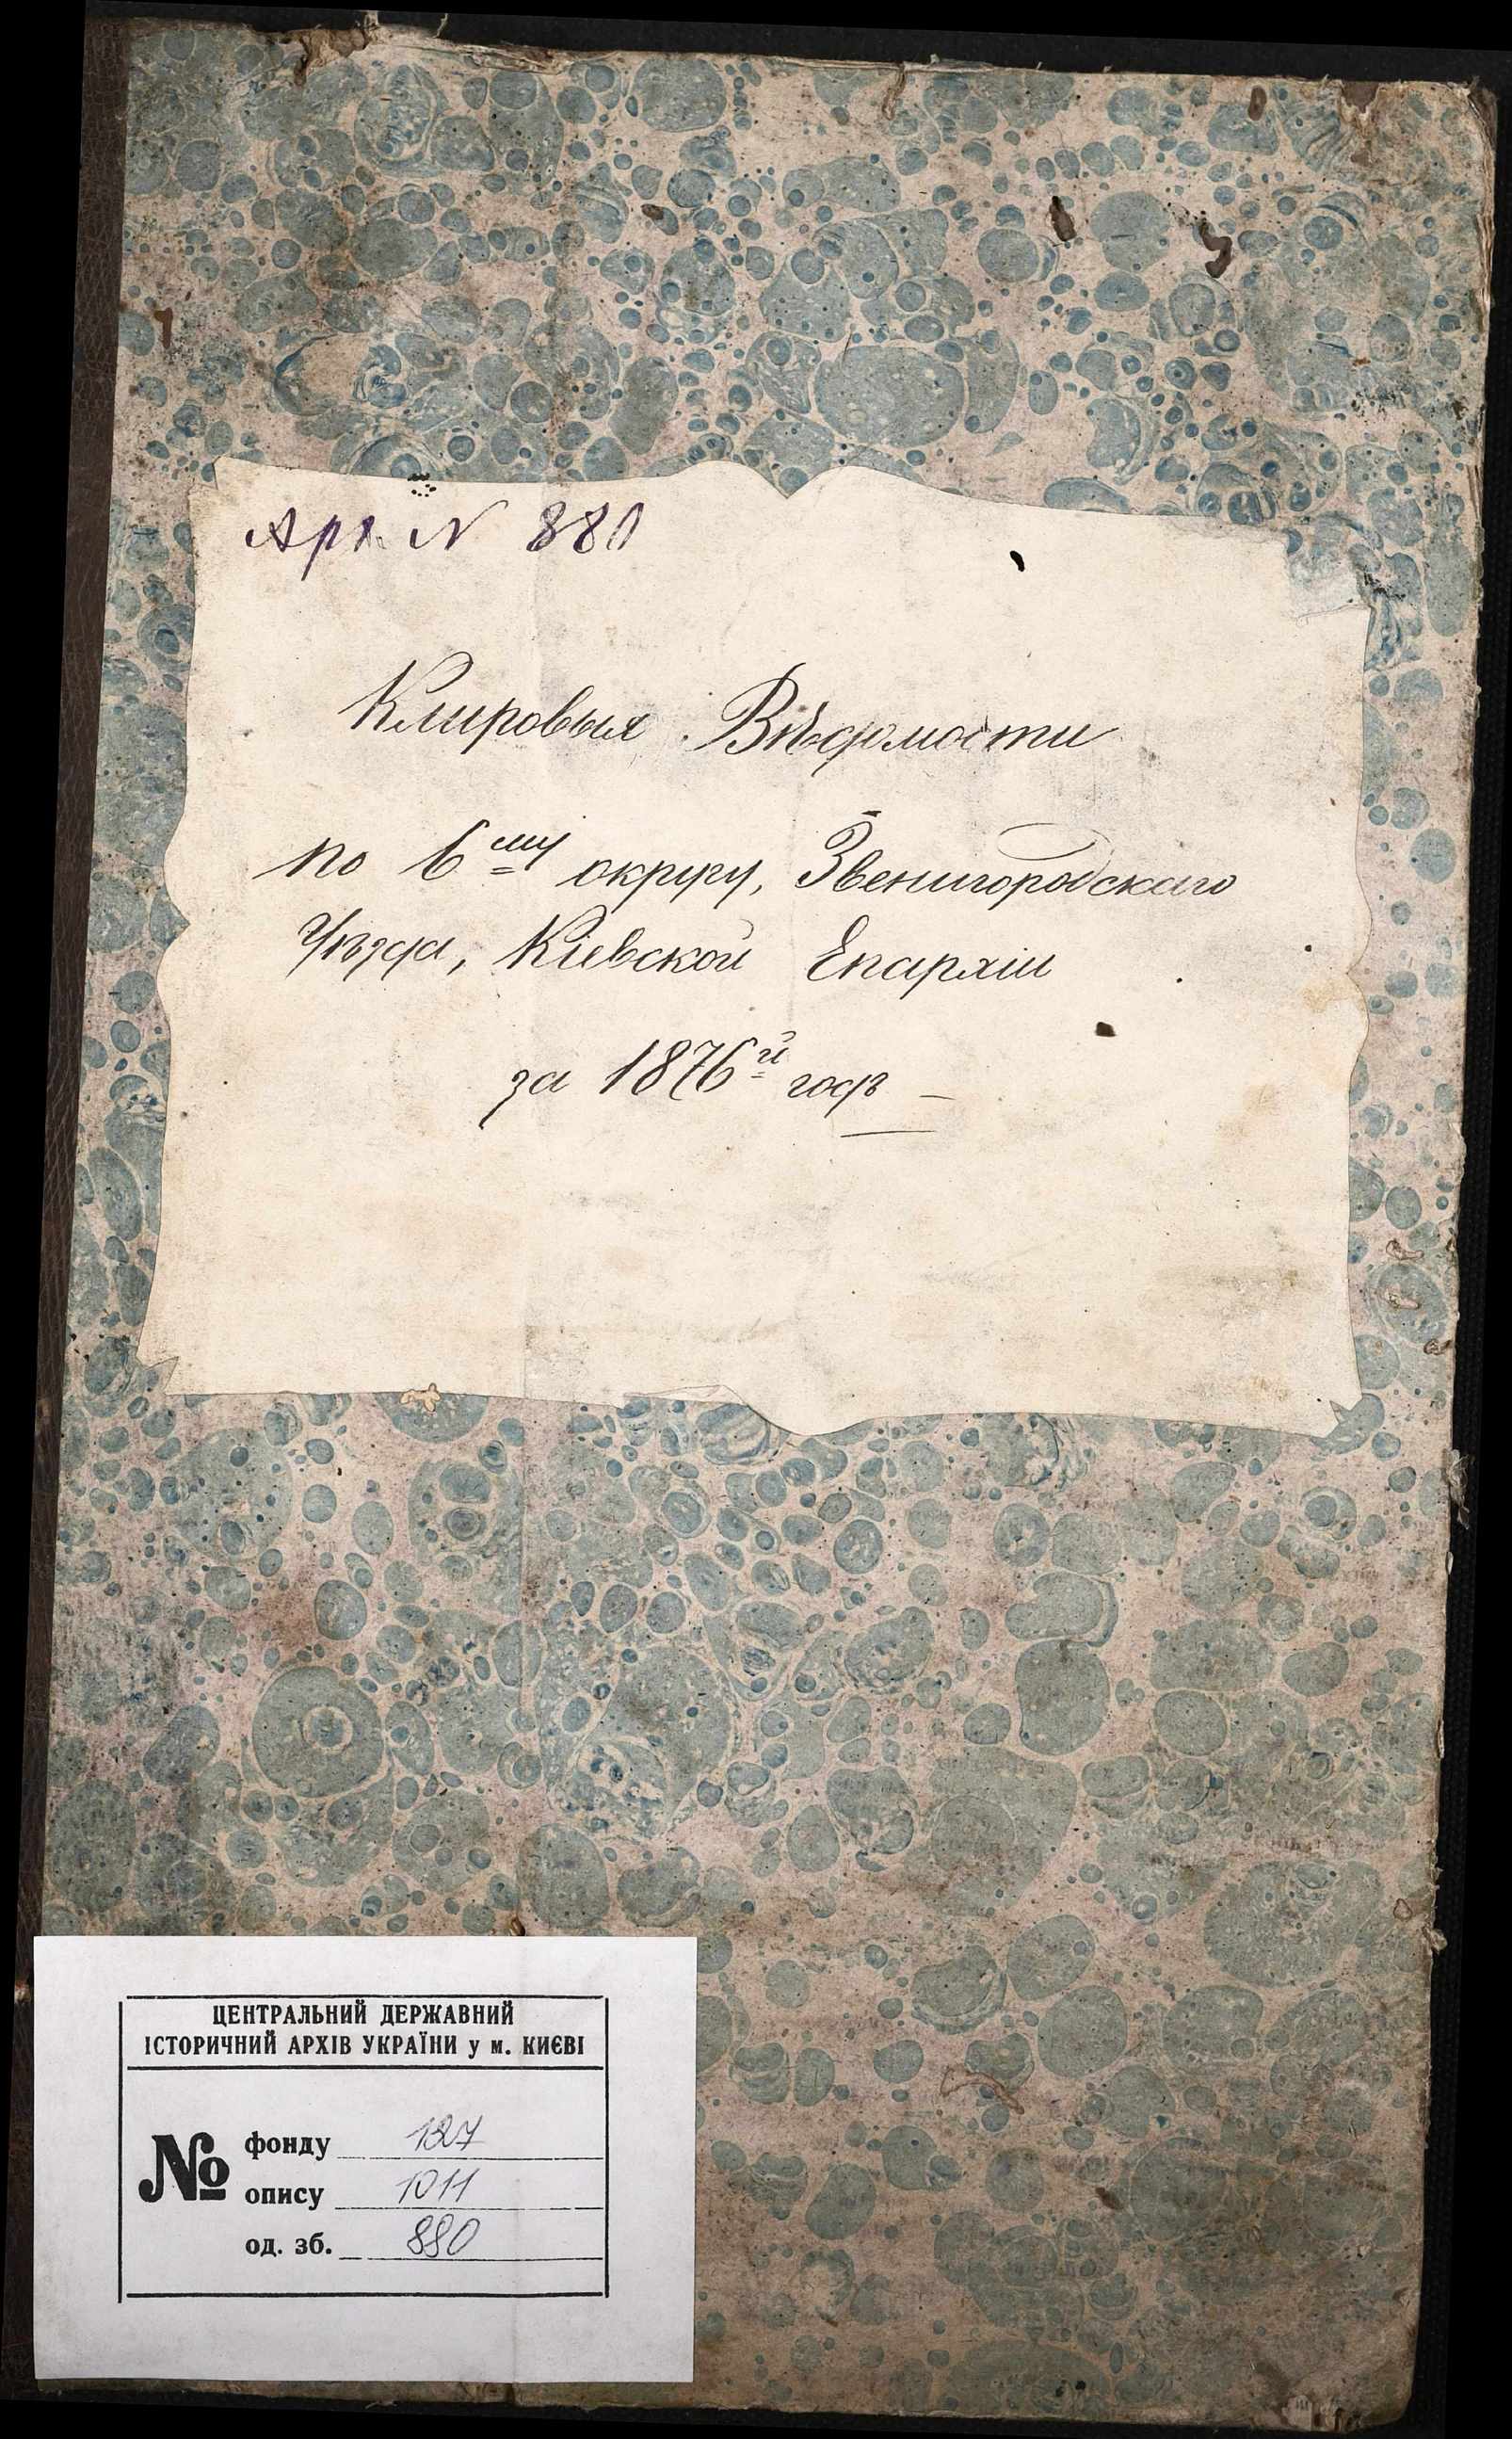 Арх. N 880
Клировыя Вѣдомости
по 6му округу, Звенигородскаго
Уѣзда, Кіевской Епархіи
за 1876й годъ
ЦЕНТРАЛЬНИЙ ДЕРЖАВНИЙ
ІСТОРИЧНИЙ АРХІВ УКРАЇНИ у м. КИЄВІ
№ фонду 127
опису 1011
од. зб. 880